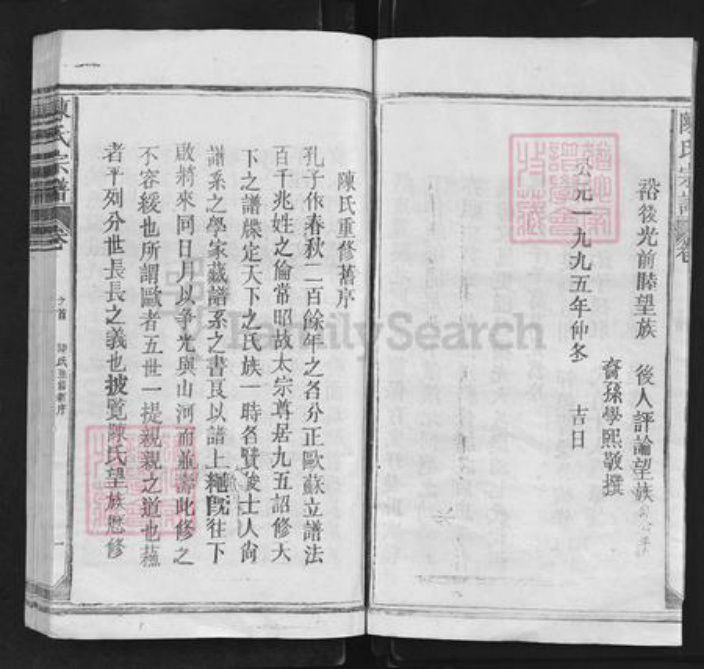 陳氏宗譜 卷
裕後光前睦望族 後人評論望族
裔孫學熙敬撰
公元一九九五年仲冬 吉日
陳氏重修舊序
孔子作春秋二百餘年之名分正歐蘇立譜法
百千兆姓之倫常昭故太宗尊居九五詔修大
下之譜牒定天下之氏族一時各賢俊士人尚
譜系之學家藏譜系之書良以譜上繩既往下
啟將來同日月以爭光與山河而並壽此修之
不容緩也所謂歐者五世一提親親之道也蘇
者平列分世長長之義也披覽陳氏望族懋修
陳氏宗譜 卷
之首 陳氏重修舊序 一
FamilySearch